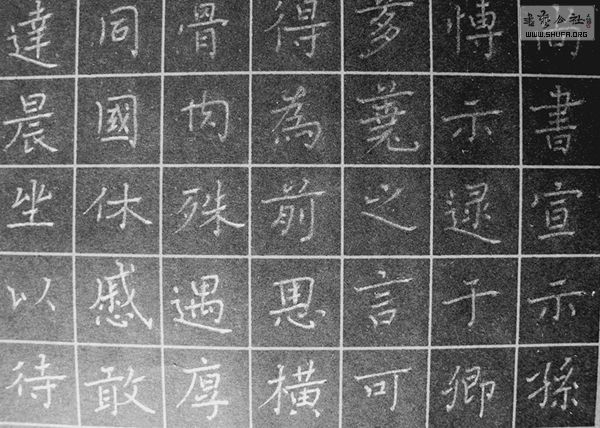 尚書宣示孫
愽示逮于卿
芻蕘之言可
得為前恩橫
骨肉殊遇厚
同國休慼敢
達晨坐以待
WWW.SHUFA.ORG